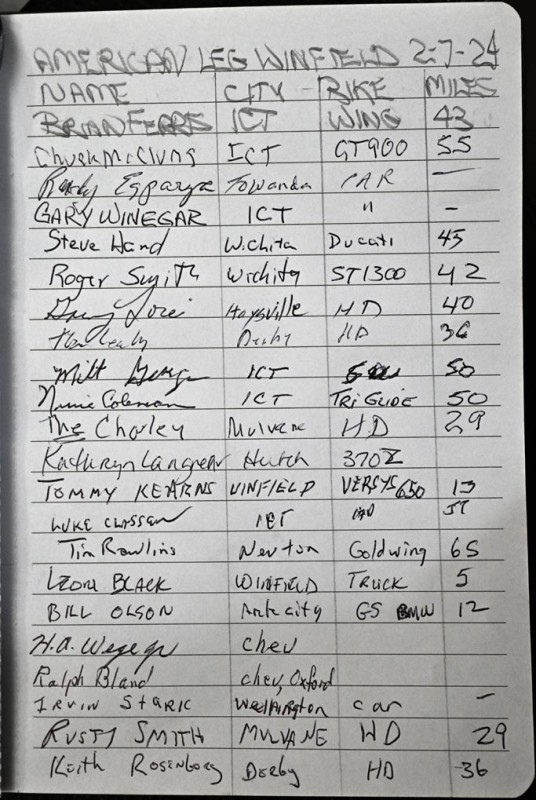 AMERICAN LEG WINFIELD 2-7-24
NAME CITY BIKE MILES
BRIAN FEARS ICT WING 43
Chuck McClung ICT GT900 55
Randy Esparza Towanda CAR —
GARY WINEGAR ICT " -
Steve Hand Wichita Ducati 45
Roger Smith Wichita ST1300 42
Haysville HD 40
Derby HD 36
Milt ICT 50
Coleman ICT TRI GLIDE 50
The Charley Mulvane HD 29
Kathryn Langner Hutch 370Z
TOMMY KEARNS WINFIELD VERSYS 650 13
LUKE CLASSEN ICT HD
Tim Rawlins Newton Goldwing 65
LEON BLACK WINFIELD TRUCK 5
BILL OLSON Ark city GS BMW 12
H.A. chev
Ralph Bland chev, Oxford
IRVIN STARK Wellington car —
RUSTY SMITH MULVANE HD 29
Keith Rosenborg Derby HD 36